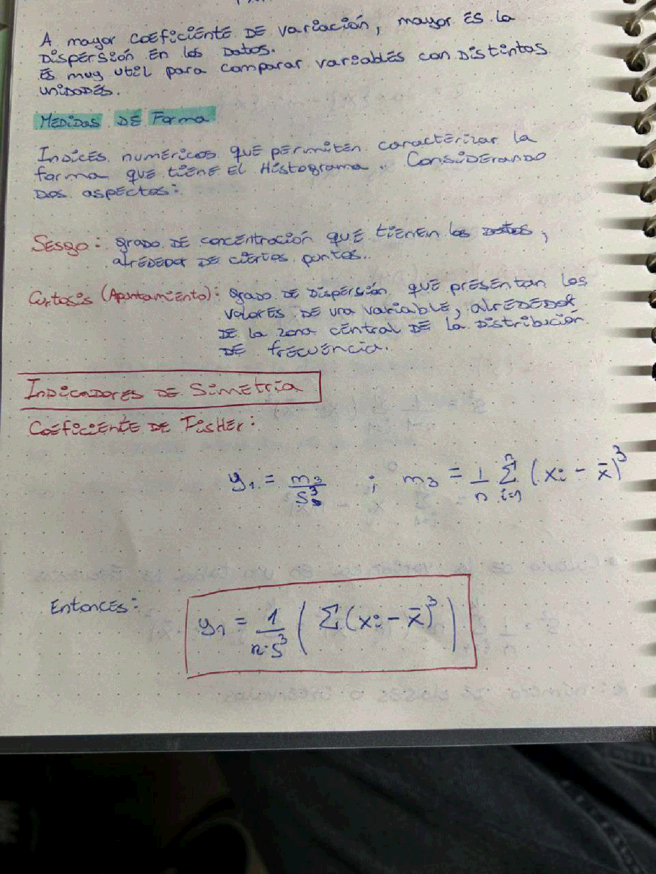 A mayor coeficiente de variación, mayor es la
dispersión en los datos.
Es muy util para comparar variables con distintas
unidades.
Medidas de Forma
Indices numéricos que permiten caracterizar la
forma que tiene el Histograma. Considerando
dos aspectos:
Sesgo: grado de concentración que tienen los datos,
alrededor de ciertos puntos.
Curtosis (Apuntamiento): grado de dispersión que presentan los
valores de una variable, alrededor
de la zona central de la distribución
de frecuencia.
Indicadores de Simetría
Coeficiente de Fisher:
y₁ = m₃/S³ ; m₃ = 1/n Σⁿᵢ₌₁ (xᵢ - x̄)³
Entonces: y₁ = 1/(n·S³) ( Σ(xᵢ - x̄)³ )